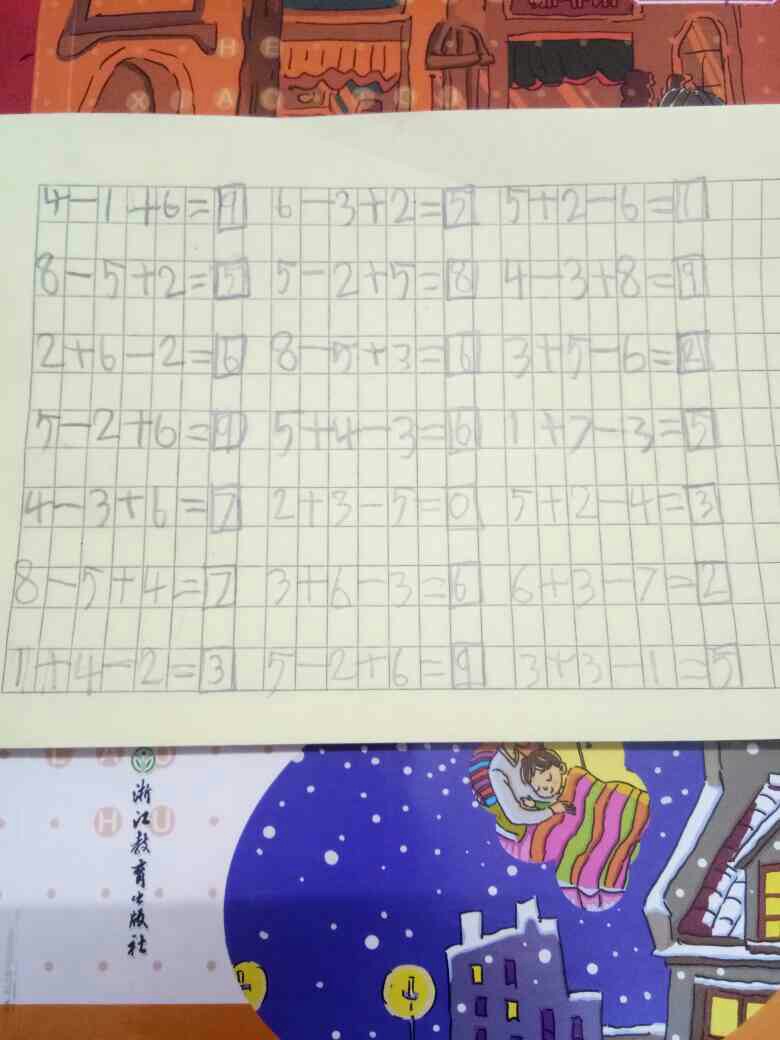 H E
X A O
4-1+6=9 6-3+2=5 5+2-6=1
8-5+2=5 5-2+5=8 4-3+8=9
2+6-2=6 8-5+3=6 3+5-6=2
5-2+6=9 5+4-3=6 1+7-3=5
4-3+6=7 2+3-5=0 5+2-4=3
8-5+4=7 3+6-3=6 6+3-7=2
1+4-2=3 5-2+6=9 3+3-1=5
L A U
H U
浙江教育出版社